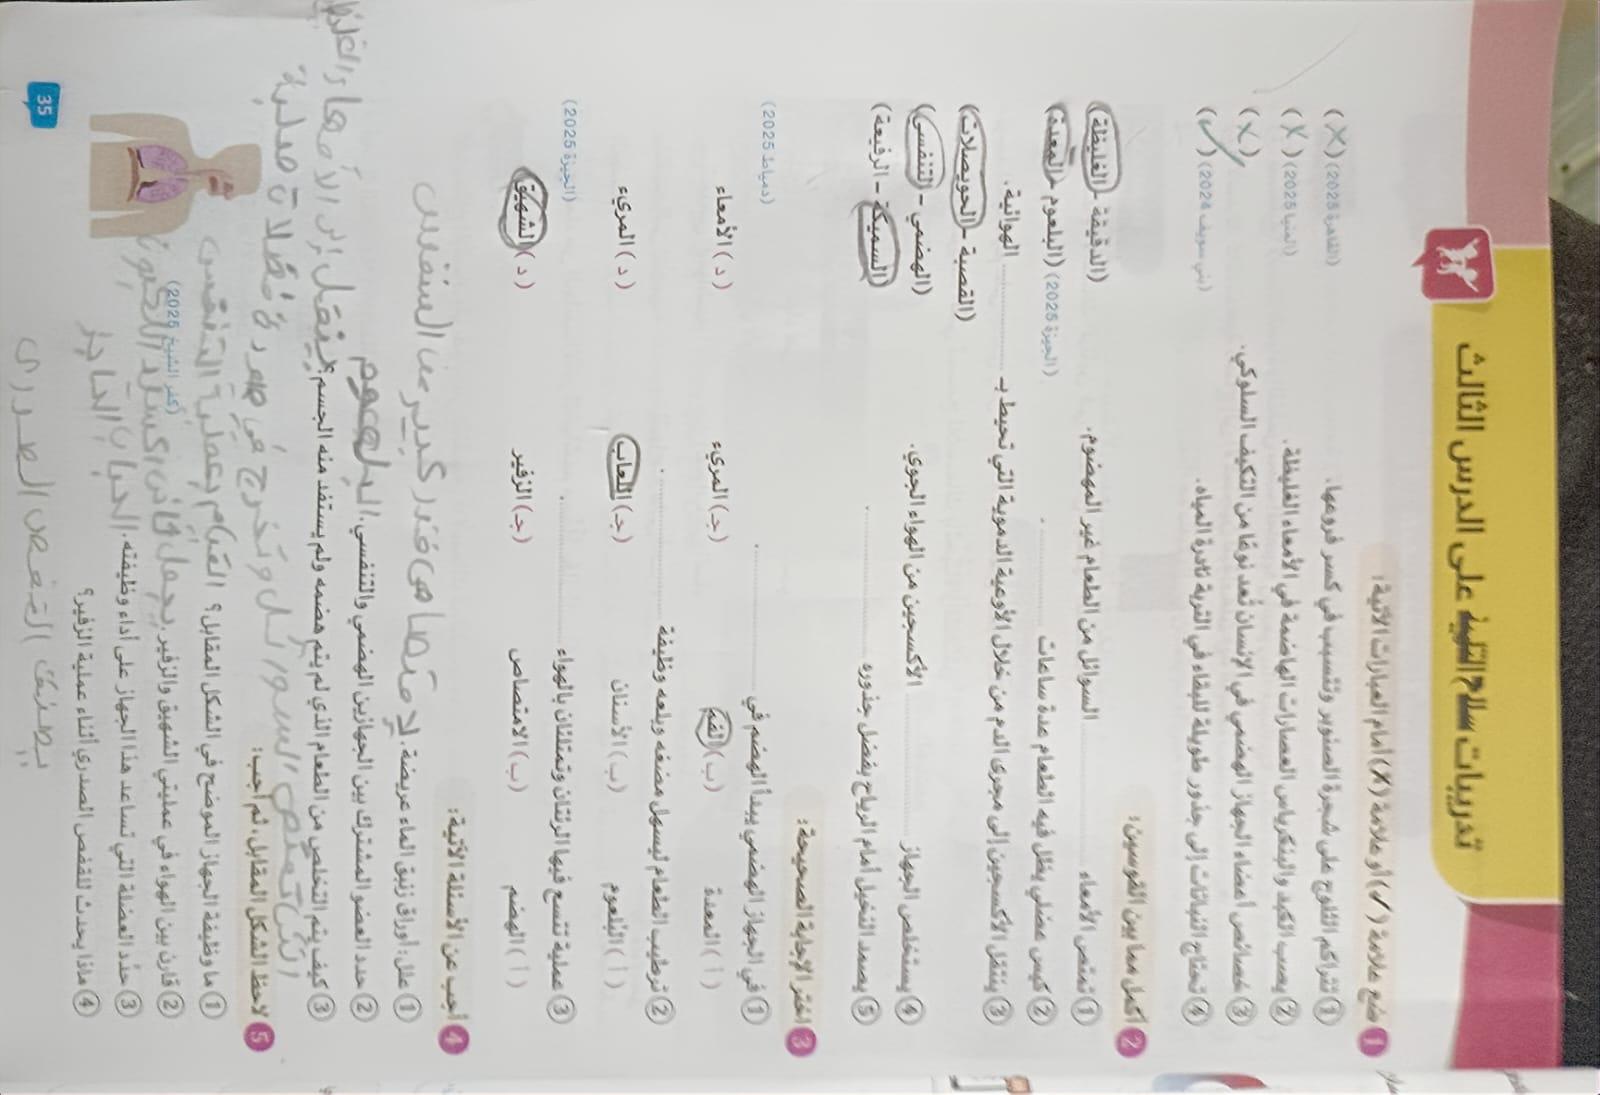 تدريبات سلاح التلميذ على الدرس الثالث
1 ضع علامة (✓) أو علامة (X) أمام العبارات الآتية:
1 تتراكم الثلوج على شجرة الصنوبر وتتسبب في كسر فروعها. (القاهرة 2025) (X)
2 يصب الكبد والبنكرياس العصارات الهاضمة في الأمعاء الغليظة. (المنيا 2025) (X)
3 خصائص أعضاء الجهاز الهضمي في الإنسان تُعد نوعًا من التكيف السلوكي. (X)
4 تحتاج النباتات إلى جذور طويلة للبقاء في التربة نادرة المياه. (بني سويف 2024) (✓)
2 أكمل مما بين القوسين:
1 تمتص الأمعاء ........ السوائل من الطعام غير المهضوم. (الدقيقة - الغليظة)
2 كيس عضلي يظل فيه الطعام عدة ساعات ........ . (الجيزة 2025) (البلعوم - المعدة)
3 ينتقل الأكسجين إلى مجرى الدم من خلال الأوعية الدموية التي تحيط بـ ........ الهوائية.
(القصبة - الحويصلات)
4 يستخلص الجهاز ........ الأكسجين من الهواء الجوي. (الهضمي - التنفسي)
5 يصمد النخيل أمام الرياح بفضل جذوره ........ . (السميكة - الرفيعة)
3 اختر الإجابة الصحيحة:
1 في الجهاز الهضمي يبدأ الهضم في ........ . (دمياط 2025)
(أ) المعدة (ب) الفم (جـ) المريء (د) الأمعاء
2 ترطيب الطعام ليسهل مضغه وبلعه وظيفة ........ .
(أ) البلعوم (ب) الأسنان (جـ) اللعاب (د) المريء
3 عملية تتسع فيها الرئتان وتمتلئان بالهواء ........ . (الجيزة 2025)
(أ) الهضم (ب) الامتصاص (جـ) الزفير (د) الشهيق
4 أجب عن الأسئلة الآتية:
1 علل: أوراق زنبق الماء عريضة. لامتصاص قدر كبير من
2 حدد العضو المشترك بين الجهازين الهضمي والتنفسي. البلعوم
3 كيف يتم التخلص من الطعام الذي لم يتم هضمه ولم يستفد منه الجسم؟ ينتقل إلى الأمعاء الغليظة
التي تمتص السوائل وتخرج في صورة فضلات صلبة
5 لاحظ الشكل المقابل، ثم أجب:
1 ما وظيفة الجهاز الموضح في الشكل المقابل؟ القيام بعملية التنفس
2 قارن بين الهواء في عمليتي الشهيق والزفير. (كفر الشيخ 2025) يحمل ثاني أكسيد الكربون
3 حدد العضلة التي تساعد هذا الجهاز على أداء وظيفته. الحجاب الحاجز
4 ماذا يحدث للقفص الصدري أثناء عملية الزفير؟
يضيق القفص الصدري
35